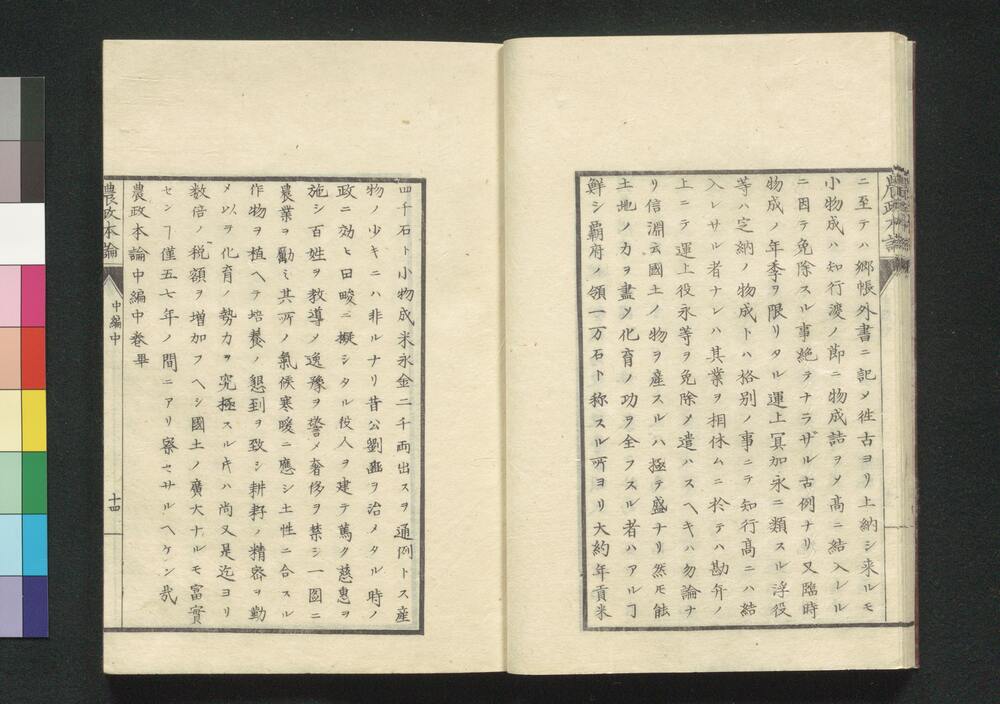 農政本論
ニ至テハ郷帳外書ニ記メ徃古ヨリ上納シ来ルモ
小物成ハ知行渡ノ節ニ物成詰ヲメ髙ニ結入レル
ニ因テ免除スル事絶テナラザル古例ナリ又臨時
物成ノ年季ヲ限リタル運上冥加永ニ類スル浮役
等ハ定納ノ物成トハ格別ノ事ニテ知行髙ニハ結
入レサル者ナレハ其業ヲ相休ムニ於テハ勘弁ノ
上ニテ運上役永等ヲ免除メ遣ハスヘキハ勿論ナ
リ信淵云國土ノ物ヲ産スルハ極テ盛ナリ然𪜈能
土地ノ力ヲ盡メ化育ノ功ヲ全フスル者ハアルヿ
鮮シ覇府ノ領一万石ト称スル所ヨリ大約年貢米
四千石ト小物成米永金二千両出スヲ通例トス産
物ノ少キニハ非ルナリ昔公劉豳ヲ治メタル時ノ
政ニ効ヒ田畯ニ擬シタル役人ヲ建テ篤ク慈惠ヲ
施シ百姓ヲ教導メ逸豫ヲ警メ奢侈ヲ禁シ一圖ニ
農業ヲ勵ミ其所ノ氣候寒暖ニ應シ土性ニ合スル
作物ヲ植ヘテ培養ノ懇到ヲ致シ耕耔ノ精密ヲ勤
メ以ヲ化育ノ勢力ヲ究極スル片ハ尚又是迄ヨリ
数倍ノ税額ヲ増加フヘシ國土ノ廣大ナルモ富實
センヿ僅五七年ノ間ニアリ察セサルヘケン哉
農政本論中編中巻畢
農政本論
中編中
十四